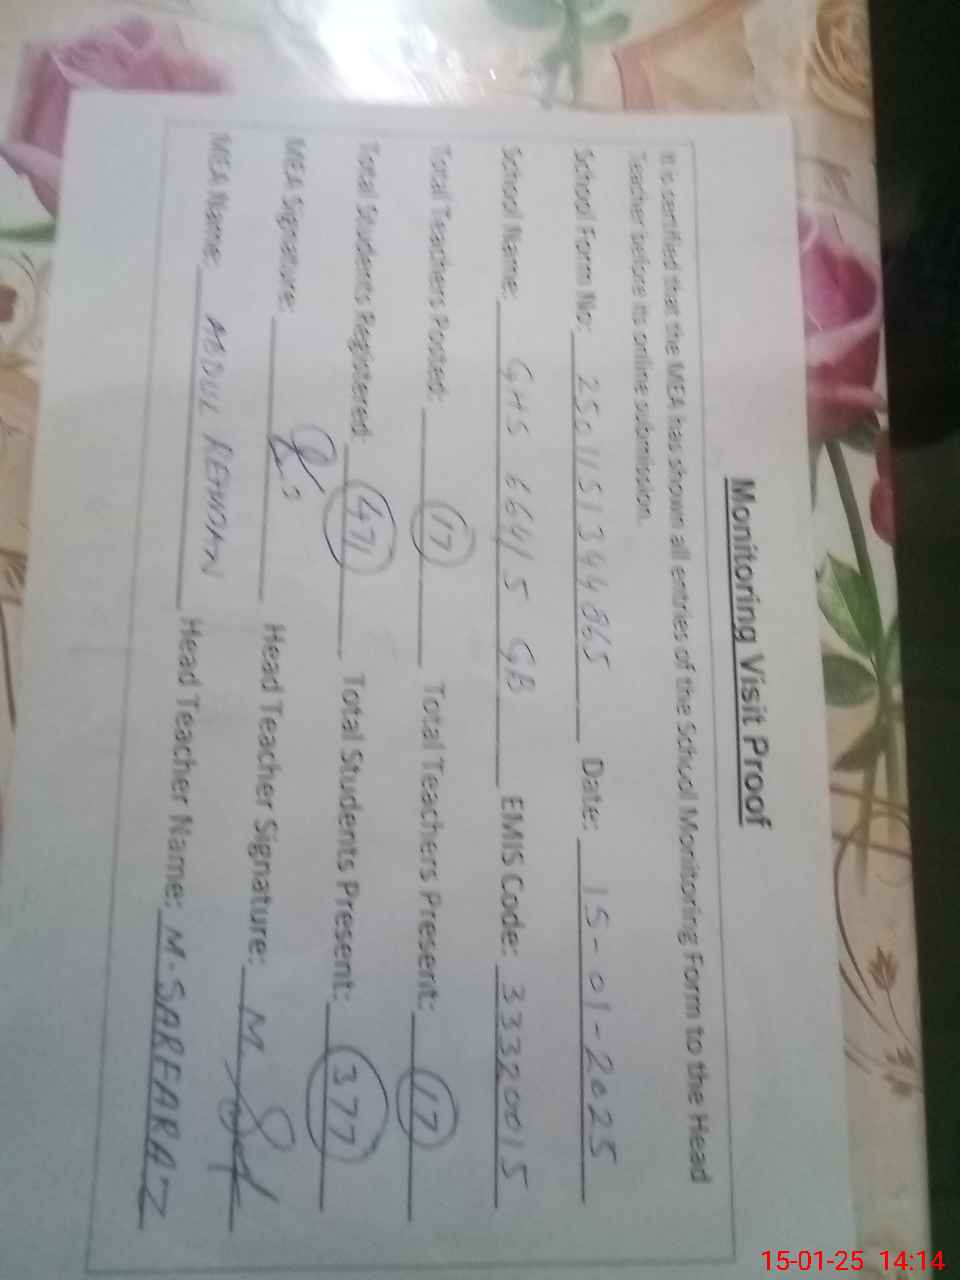 Monitoring Visit Proof
It is certified that the MEA has shown all entries of the School Monitoring Form to the Head
Teacher before its online submission.
School Form No: 25011513444865 Date: 15-01-2025
School Name: GHS 664/5 GB EMIS Code: 33320015
Total Teachers Posted: 17 Total Teachers Present: 17
Total Students Registered: 471 Total Students Present: 377
MEA Signature: Head Teacher Signature: M.
MEA Name: ABDUL REHMAN Head Teacher Name: M. SARFARAZ
15-01-25 14:14